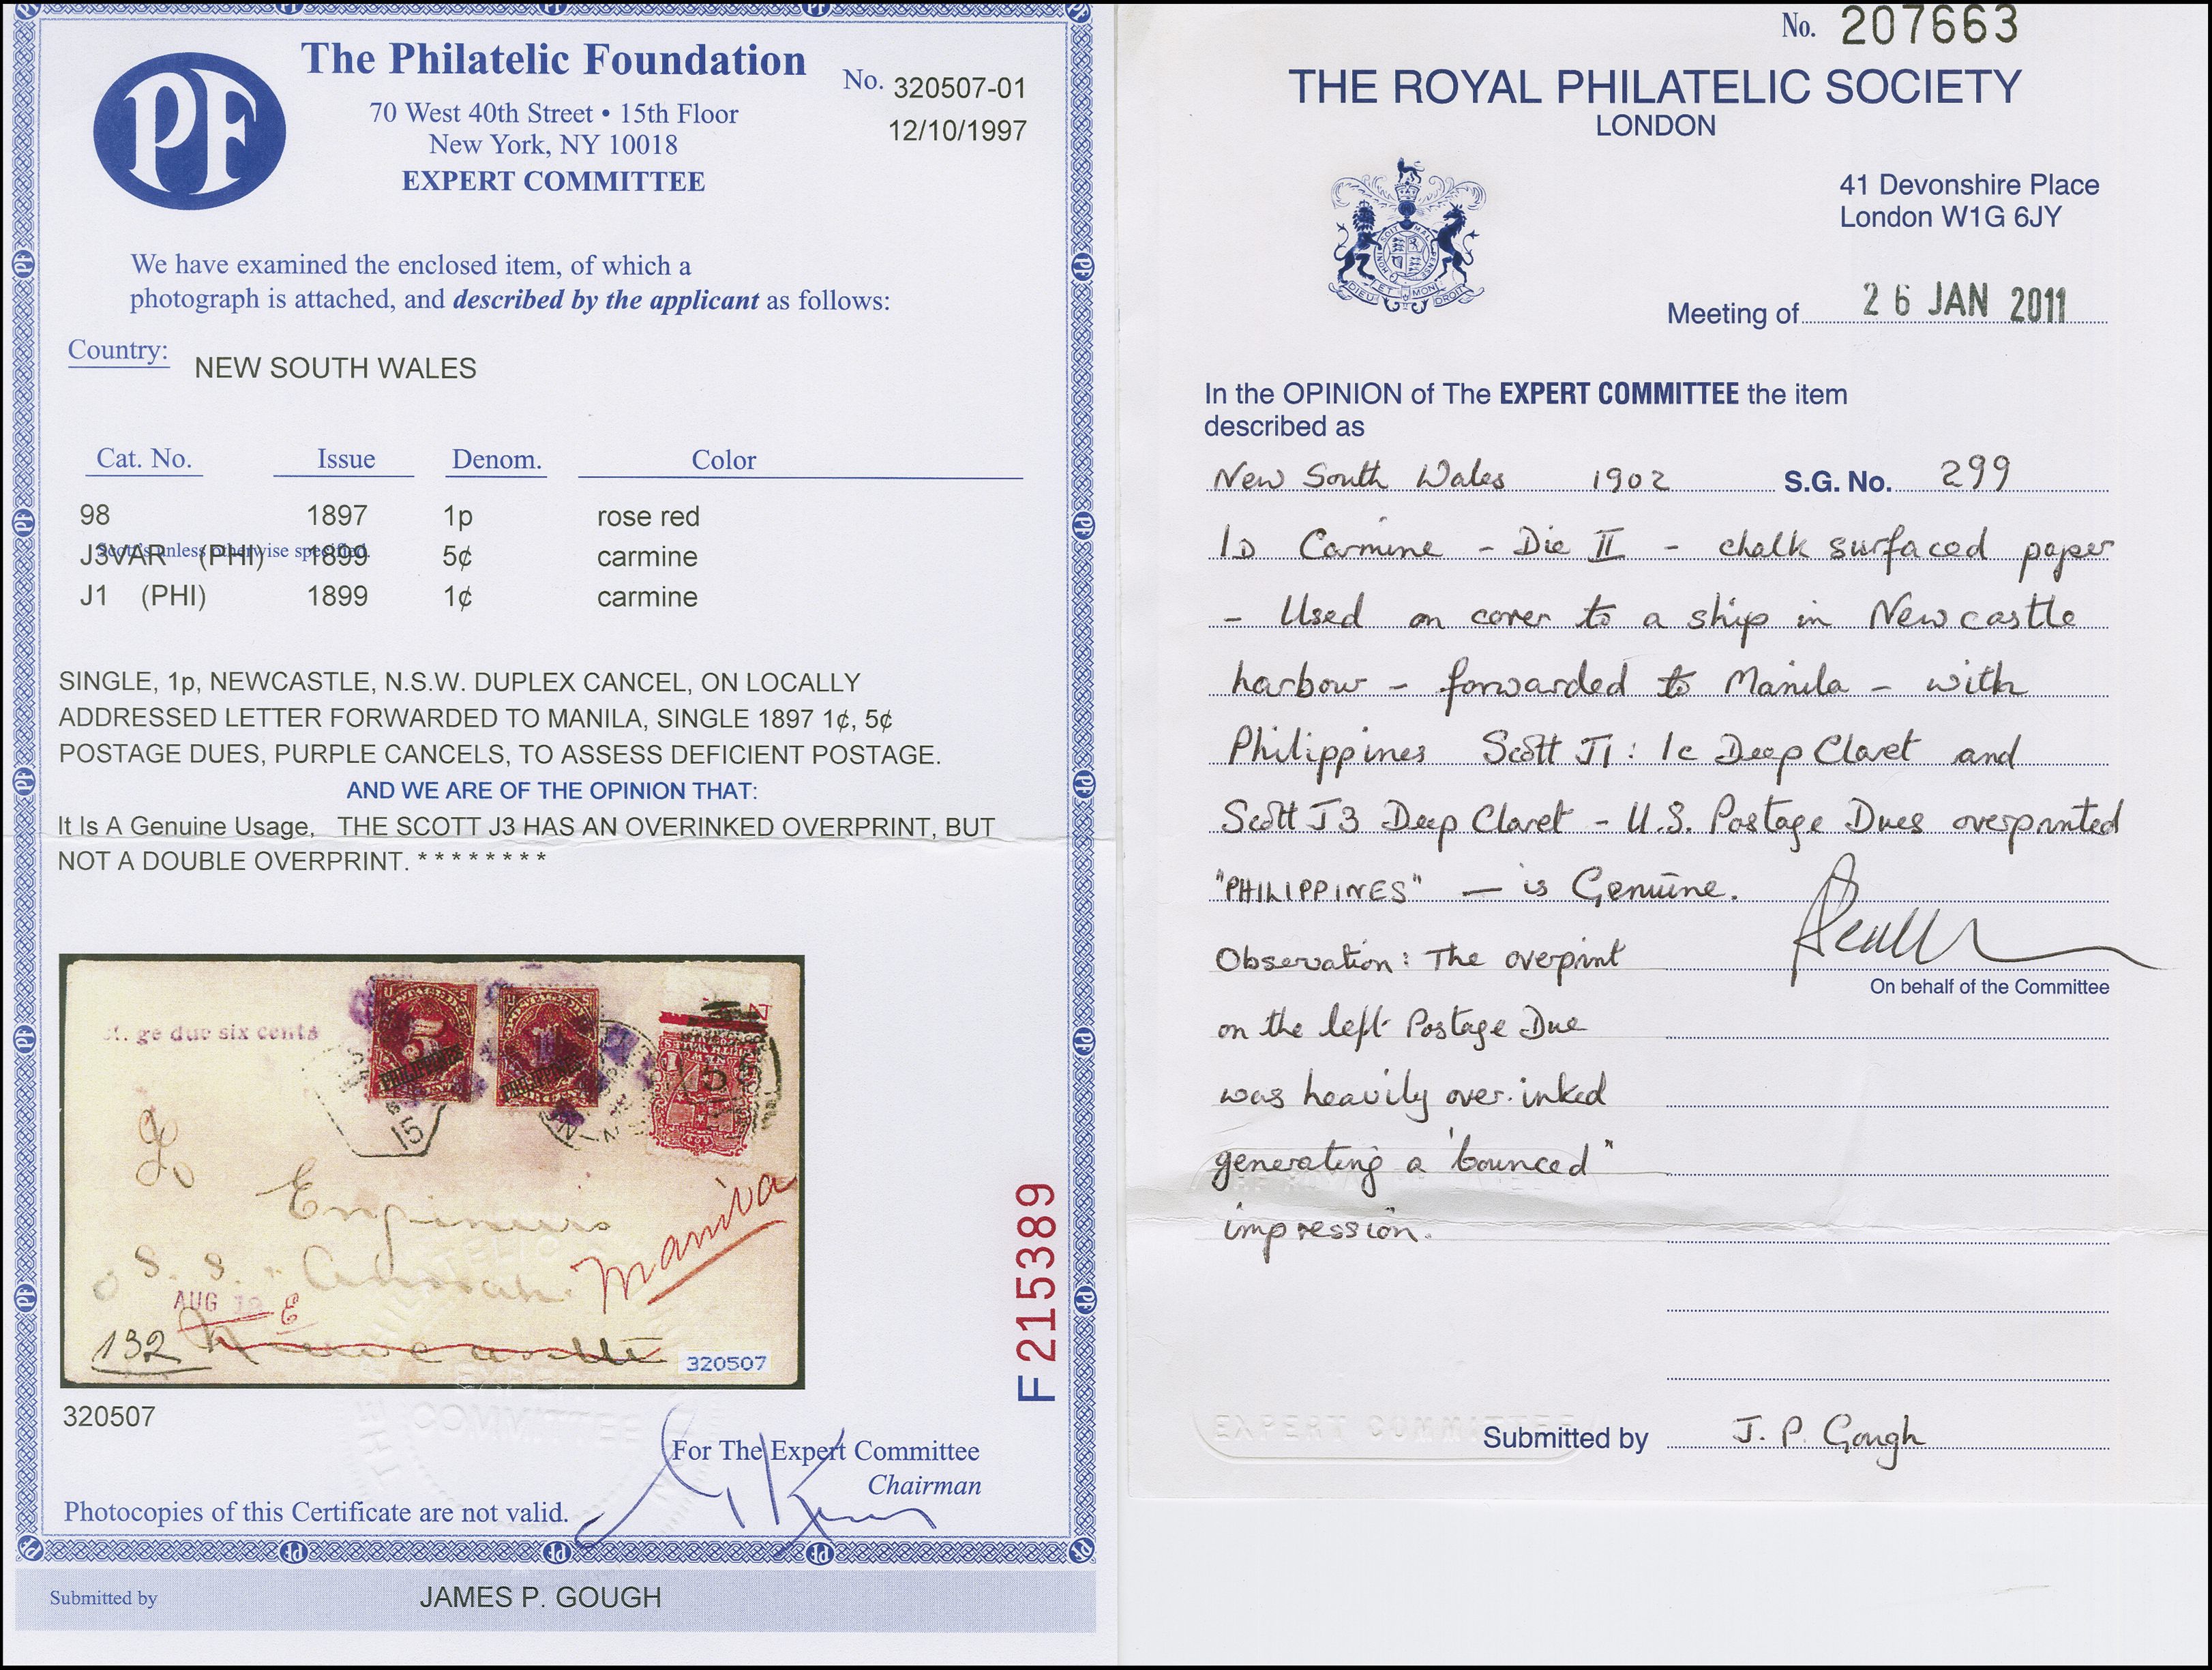 PF
The Philatelic Foundation
70 West 40th Street • 15th Floor
New York, NY 10018
EXPERT COMMITTEE
No. 320507-01
12/10/1997
We have examined the enclosed item, of which a
photograph is attached, and described by the applicant as follows:
Country: NEW SOUTH WALES
Cat. No. Issue Denom. Color
98 1897 1p rose red
Scott's unless otherwise specified.
J3VAR (PHI) 1899 5¢ carmine
J1 (PHI) 1899 1¢ carmine
SINGLE, 1p, NEWCASTLE, N.S.W. DUPLEX CANCEL, ON LOCALLY
ADDRESSED LETTER FORWARDED TO MANILA, SINGLE 1897 1¢, 5¢
POSTAGE DUES, PURPLE CANCELS, TO ASSESS DEFICIENT POSTAGE.
AND WE ARE OF THE OPINION THAT:
It Is A Genuine Usage, THE SCOTT J3 HAS AN OVERINKED OVERPRINT, BUT
NOT A DOUBLE OVERPRINT. * * * * * * * *
ge due six cents
PHILIPPINES
PHILIPPINES
15
Engineers
S. S.
Manila
AUG
E
132 Newcastle
320507
F 215389
320507
For The Expert Committee
Chairman
Photocopies of this Certificate are not valid.
Submitted by JAMES P. GOUGH
No. 207663
THE ROYAL PHILATELIC SOCIETY
LONDON
41 Devonshire Place
London W1G 6JY
Meeting of 26 JAN 2011
In the OPINION of The EXPERT COMMITTEE the item
described as
New South Wales 1902 S.G. No. 299
1D Carmine - Die II - chalk surfaced paper
- Used on cover to a ship in Newcastle
harbour - forwarded to Manila - with
Philippines Scott J1: 1c Deep Claret and
Scott J3 Deep Claret - U.S. Postage Dues overprinted
"PHILIPPINES" — is Genuine.
Observation: The overprint
on the left Postage Due
was heavily over-inked
generating a 'bounced"
impression.
On behalf of the Committee
EXPERT COMMITTEE
Submitted by J. P. Gough